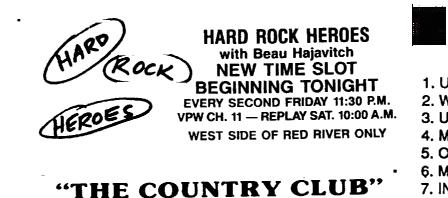 HARD
ROCK
HEROES
HARD ROCK HEROES
with Beau Hajavitch
NEW TIME SLOT
BEGINNING TONIGHT
EVERY SECOND FRIDAY 11:30 P.M.
VPW CH. 11 — REPLAY SAT. 10:00 A.M.
WEST SIDE OF RED RIVER ONLY
"THE COUNTRY CLUB"
1. U
2. W
3. U
4. M
5. O
6. M
7. IN